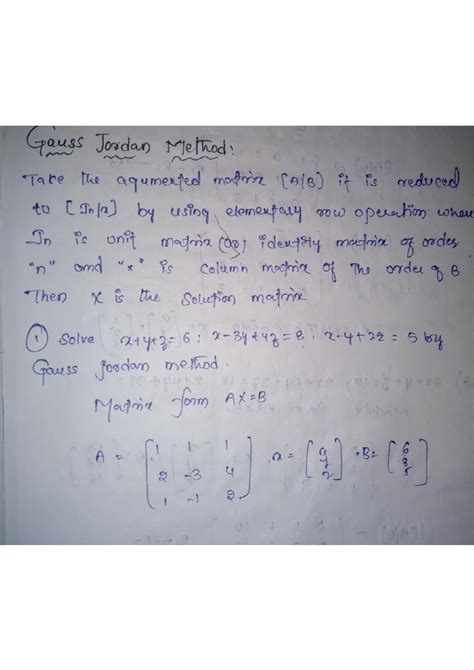 Gauss Jordan Method:
Take the aqumerted matrix [A|B] it is reduced
to [In|x] by using elementary row operation where
In is unit matrix (or) identity matrix of order
"n" and "x" is column matrix of the order of B
Then x is the solution matrix
① Solve x+y+z=6 ; x-3y+4z=8 , x-y+2z=5 by
Gauss Jordan method.
Matrix form AX=B
A = [ 1 1 1 x = [ x B= [ 6
2 -3 4 y 8
1 -1 2 ] z ] 5 ]